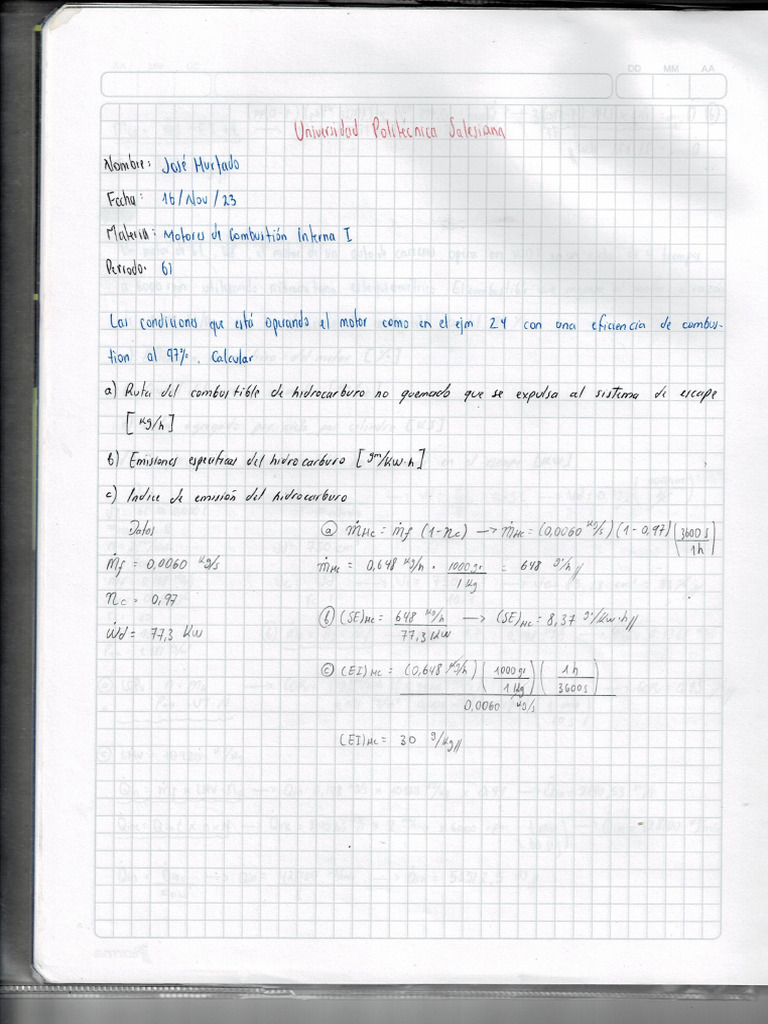 AA MM DD
Universidad Politécnica Salesiana
Nombre: José Hurtado
Fecha: 16/Nov/23
Materia: Motores de Combustión Interna I
Periodo: 61
Las condiciones que está operando el motor como en el ejm 24 con una eficiencia de combus-
tion al 97%. Calcular
a) Ruta del combustible de hidrocarburo no quemado que se expulsa al sistema de escape
[kg/h]
b) Emisiones especificas del hidrocarburo [gm/kw·h]
c) Indice de emisión del hidrocarburo
Datos
ṁf = 0,0060 kg/s
ηc = 0,97
Ẇd = 77,3 Kw
a) ṁHc = ṁf (1-ηc) → ṁHc = (0,0060 kg/s)(1-0,97)(3600 s / 1h)
ṁHc = 0,648 kg/h · 1000gr / 1 Kg = 648 gr/h //
b) (SE)Hc = 648 kg/h / 77,3 KW → (SE)Hc = 8,37 gr/kw·h //
c) (EI)Hc = (0,648 kg/h) (1000gr / 1 Kg) (1h / 3600s) / 0,0060 kg/s
(EI)Hc = 30 g/kg //